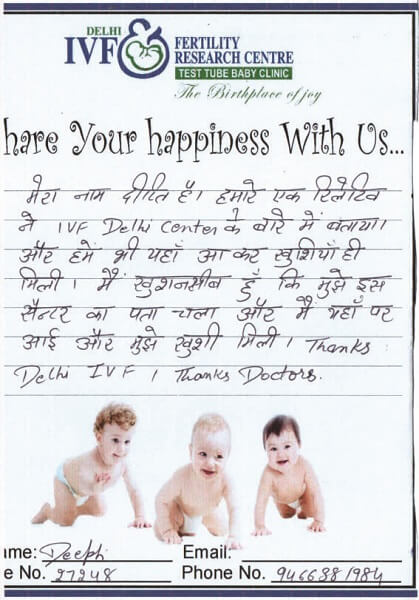 DELHI
IVF & FERTILITY
RESEARCH CENTRE
TEST TUBE BABY CLINIC
The Birthplace of joy
hare Your happiness With Us...
मेरा नाम दीप्ति है। हमारे एक रिलेटिव
ने IVF Delhi Center के बारे में बताया।
और हमें भी यहाँ आ कर खुशियाँ ही
मिली। मैं खुशनसीब हूँ कि मुझे इस
सैन्टर का पता चला और मैं यहाँ पर
आई और मुझे खुशी मिली। Thanks
Delhi IVF। Thanks Doctors.
ame: Deepti Email:
e No. 27248 Phone No. 9466381984